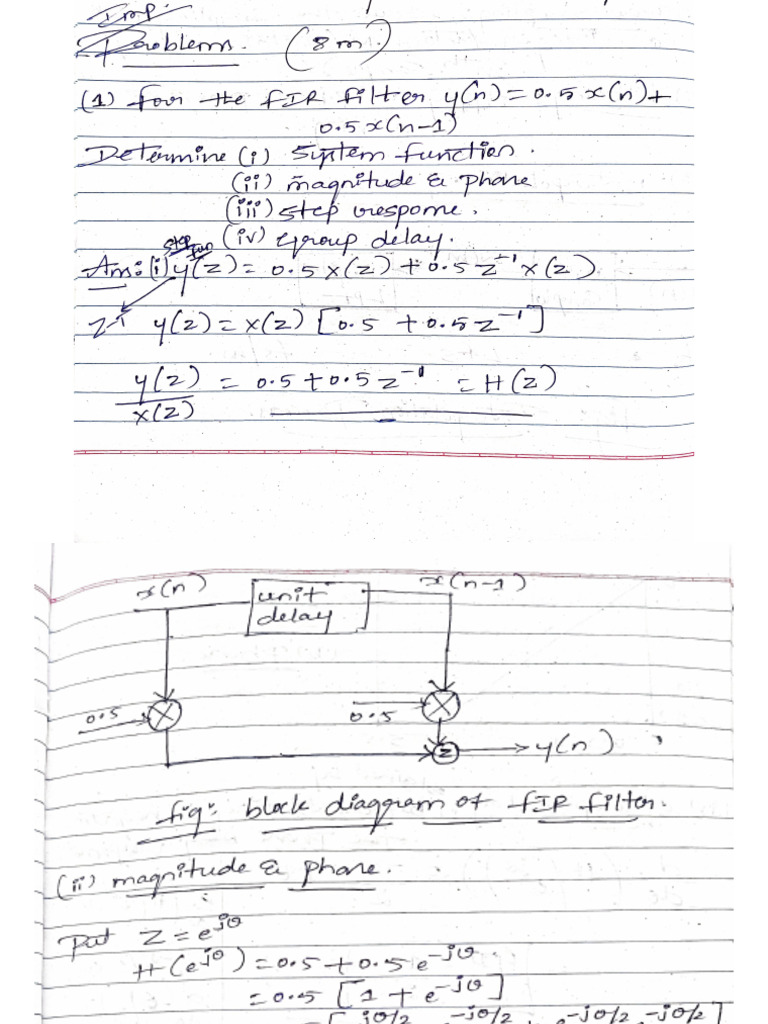 Imp.
Problems. (8m.)
(1) for the FIR filter y(n) = 0.5 x(n) +
0.5 x(n-1)
Determine (i) System function.
(ii) magnitude & phase
(iii) step response.
(iv) group delay.
step fun
Ans: (i) y(z) = 0.5 x(z) + 0.5 z⁻¹ x(z)
z-T y(z) = x(z) [0.5 + 0.5 z⁻¹]
y(z)/x(z) = 0.5 + 0.5 z⁻¹ = H(z)
x(n) unit delay x(n-1)
0.5 0.5
Σ y(n)
fig: block diagram of FIR filter.
(ii) magnitude & phase.
Put z = e^jθ
H(e^jθ) = 0.5 + 0.5 e^-jθ
= 0.5 [1 + e^-jθ]